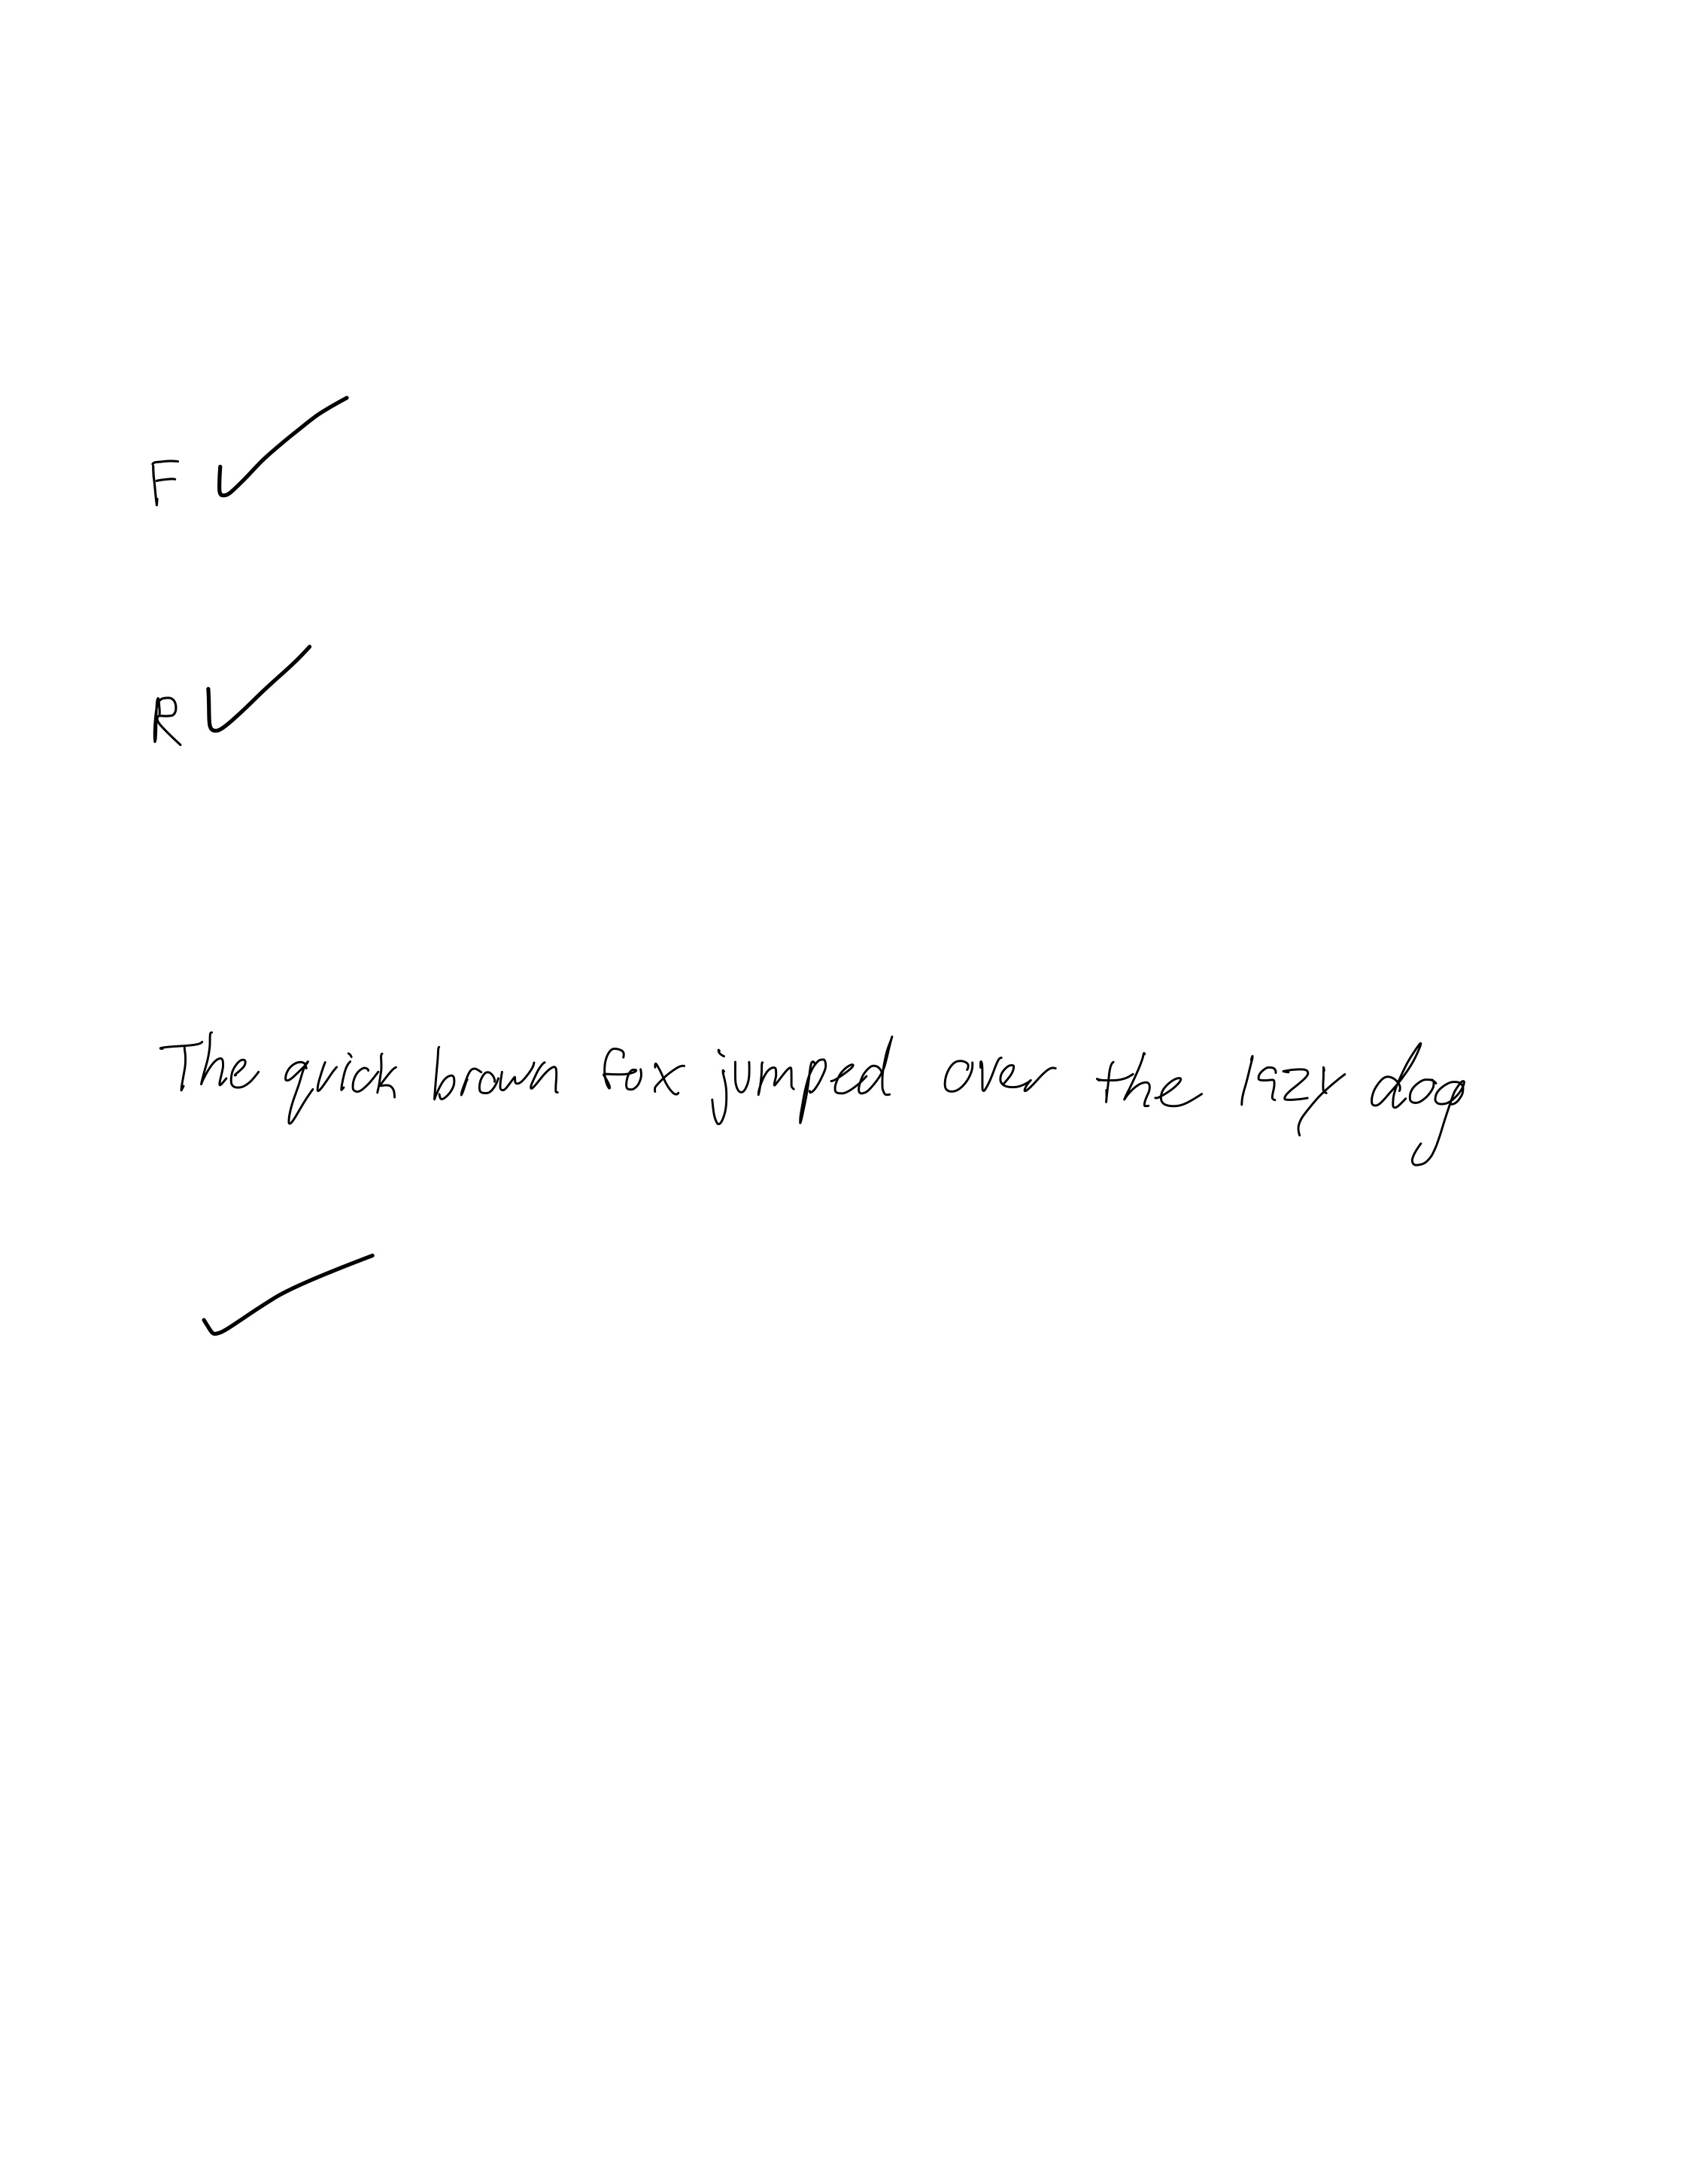 F ✓
R ✓
The quick brown fox jumped over the lazy dog
✓